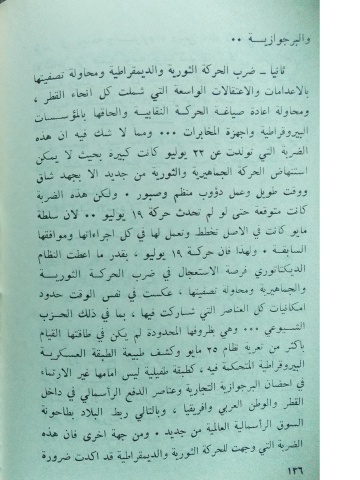 والبرجوازيـــة ٠٠
ثانيا ـ ضرب الحركة الثورية والديمقراطية ومحاولة تصفيتها
بالاعدامات والاعتقالات الواسعة التي شملت كل انحاء القطر ،
ومحاولة اعادة صياغة الحركة النقابيـة والحاقها بالمؤسسـات
البيروقراطية واجهزة المخابرات ٠٠٠ ومما لا شك فيه ان هذه
الضربة التي تولدت عن ٢٢ يوليو كانت كبيرة بحيث لا يمكن
استنهاض الحركة الجماهيرية والثورية من جديد الا بجهد شاق
ووقت طويل وعمل دؤوب منظم وصبور ٠ ولكن هذه الضربة
كانت متوقعة حتى لو لم تحدث حركة ١٩ يوليو ٠٠ لان سلطة
مايو كانت في الاصل تخطط وتعمل لها في كل اجراءاتها ومواقفها
السابقة ٠ ولهذا فان حركـة ١٩ يوليو ، بقدر ما اعطت النظام
الديكتاتوري فرصة الاستعجال في ضرب الحركـة الثوريـة
والجماهيرية ومحاولة تصفيتها ، عكست في نفس الوقت حدود
امكانيات كل العناصر التي شاركت فيها ، بما في ذلك الحـزب
الشيـوعي ٠٠٠ وهي بظروفها المحدودة لم يكن في طاقتها القيام
باكثر من تعرية نظام ٢٥ مايو وكشف طبيعة الطبقة العسكريـة
البيروقراطية المتحكمة فيه ، كطبقة طفيلية ليس امامها غير الارتماء
في احضان البرجوازية التجارية وعناصر الدفع الرأسمالي في داخل
القطر والوطن العربي وافريقيا ، وبالتالي ربط البلاد بطاحونة
السوق الرأسمالية العالمية من جديد ٠ ومن جهة اخرى فان هذه
الضربة التي وجهت للحركة الثورية والديمقراطية قد اكدت ضرورة
١٣٦